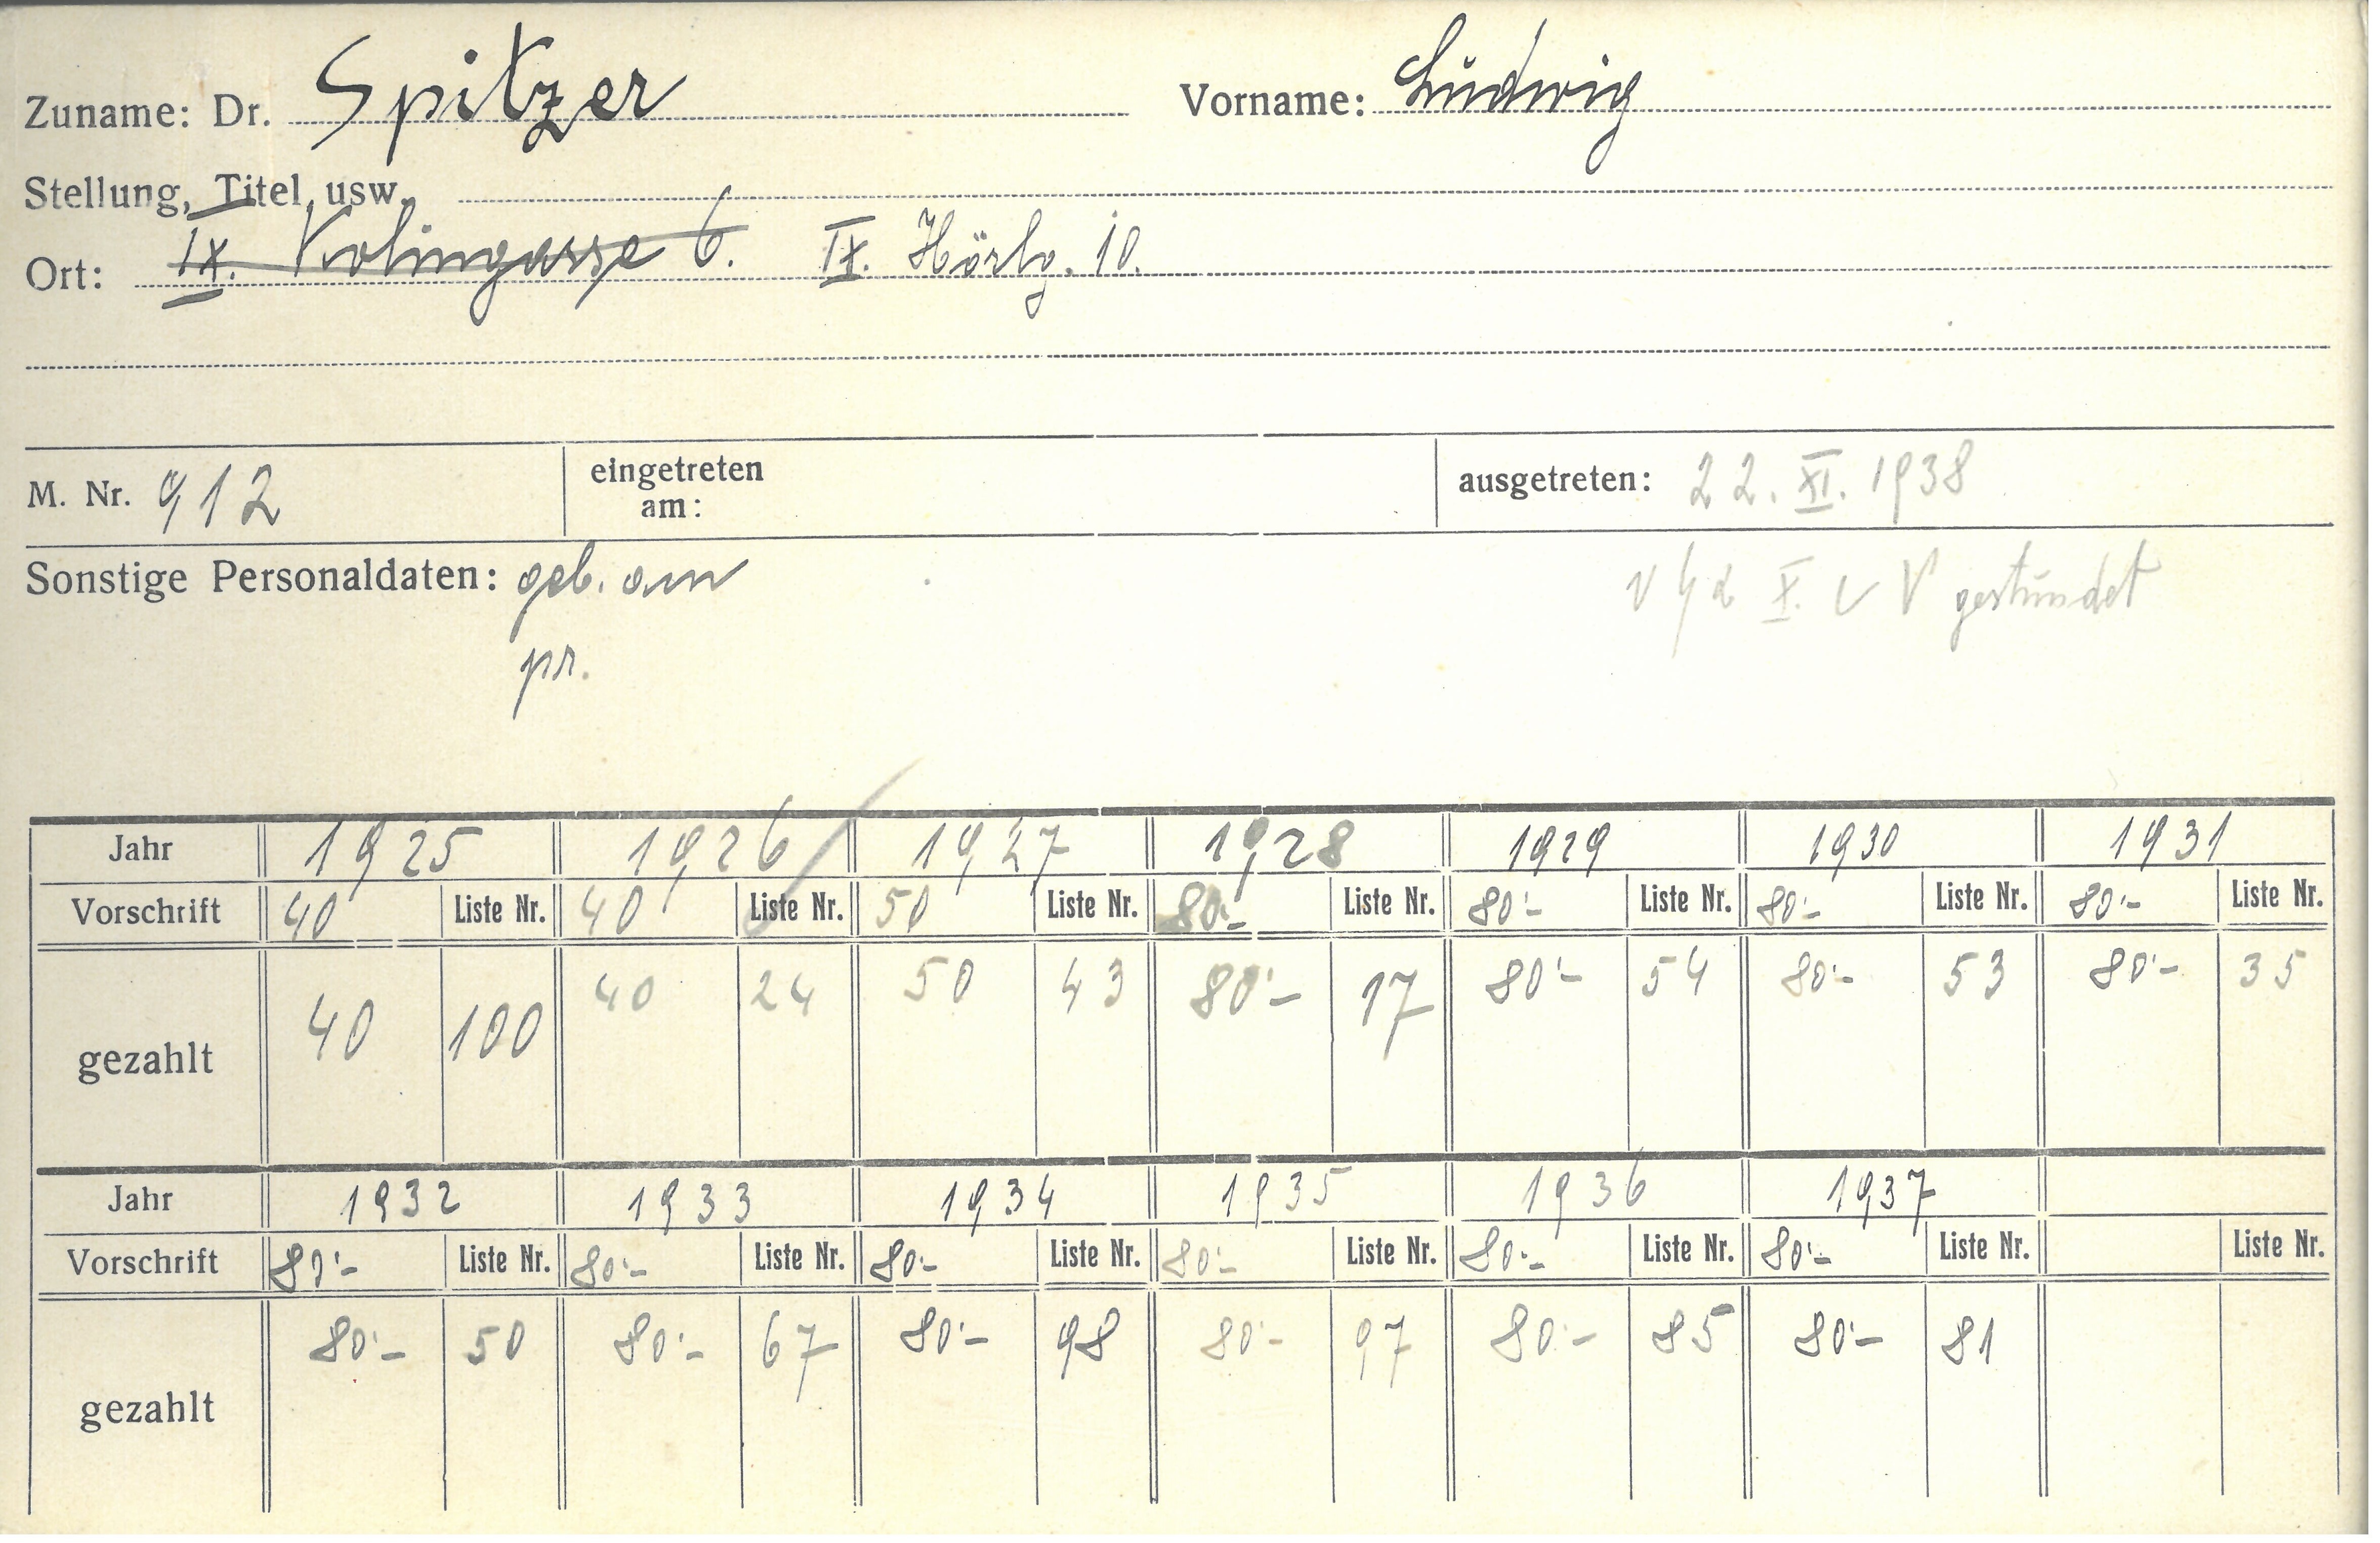 Zuname: Dr. Spitzer Vorname: Ludwig
Stellung, Titel usw.
Ort: IX. Kolingasse 6. IX. Hörlg. 10.
M. Nr. 912 eingetreten am: ausgetreten: 22. XI. 1938
Sonstige Personaldaten: geb. am gestundet
pr.
Jahr 1925 1926 1927 1928 1929 1930 1931
Vorschrift 40 Liste Nr. 40 Liste Nr. 50 Liste Nr. 80.- Liste Nr. 80.- Liste Nr. 80.- Liste Nr. 80.- Liste Nr.
gezahlt 40 100 40 24 50 43 80.- 17 80.- 54 80.- 53 80.- 35
Jahr 1932 1933 1934 1935 1936 1937
Vorschrift 80.- Liste Nr. 80.- Liste Nr. 80.- Liste Nr. 80.- Liste Nr. 80.- Liste Nr. 80.- Liste Nr. Liste Nr.
gezahlt 80.- 50 80.- 67 80.- 98 80.- 97 80.- 85 80.- 81